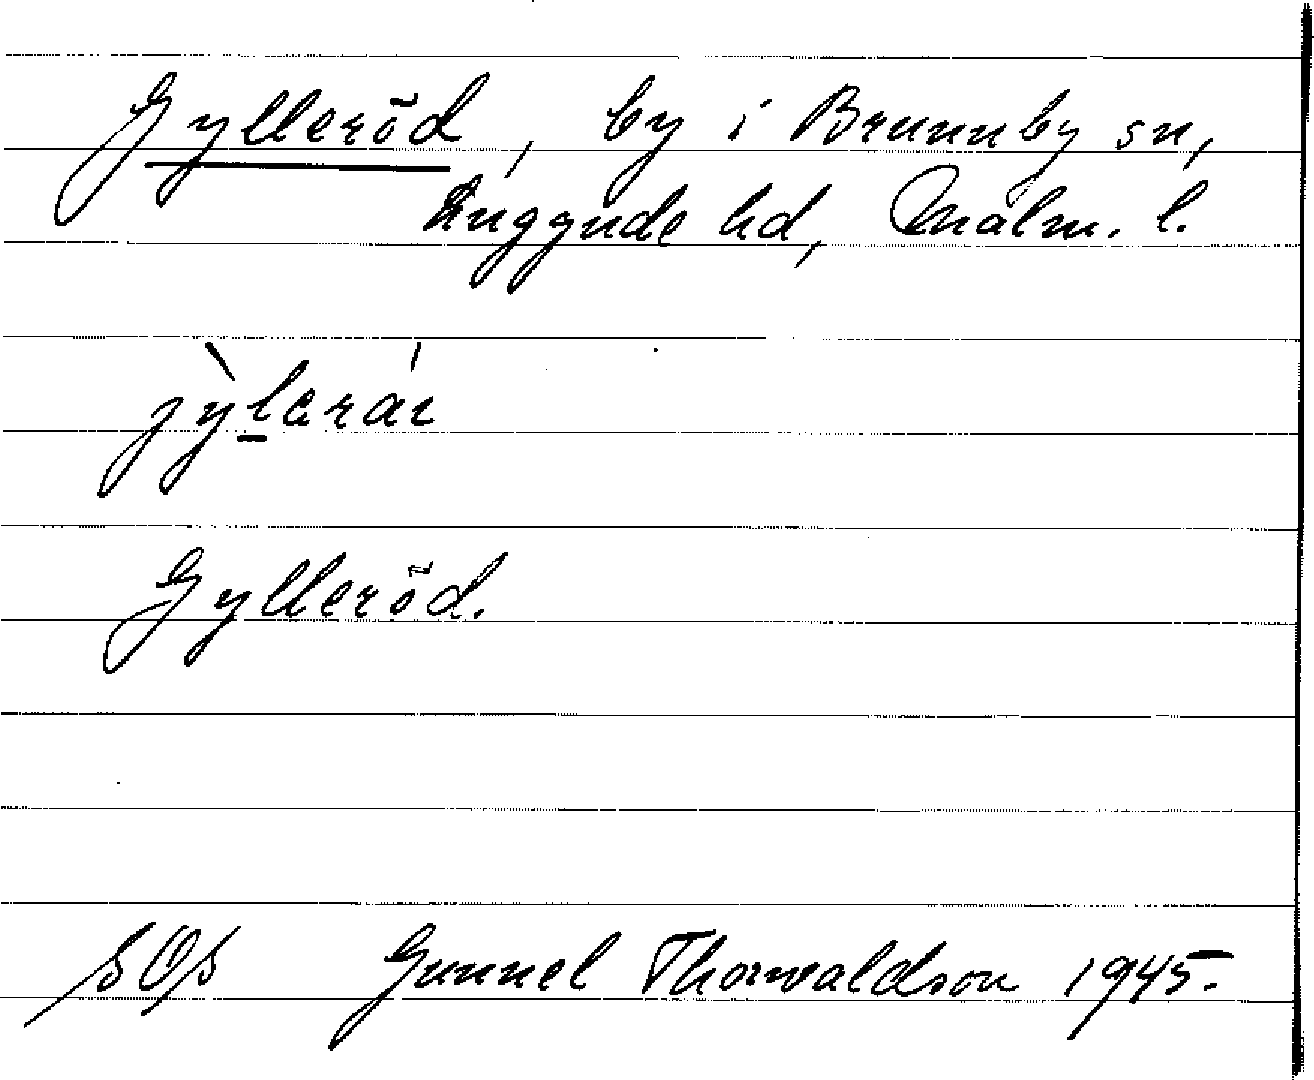 Gylleröd, by i Brunnby sn,
Luggude hd, Malm. l.
jỳlarái
Gylleröd.
SOS Gunnel Thorwaldson 1945.